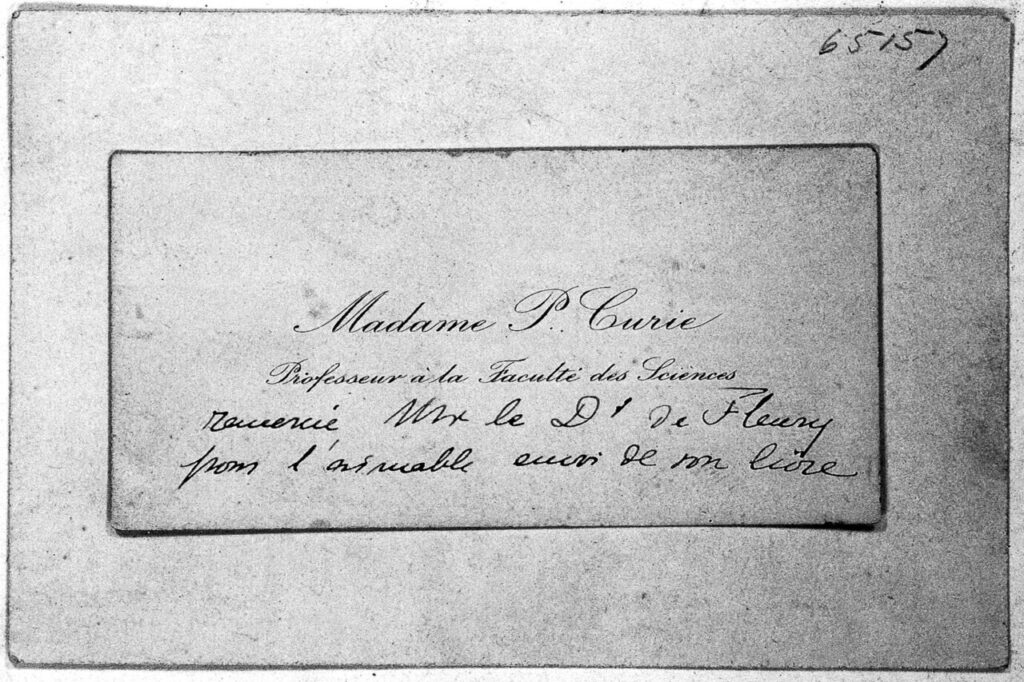 65157
Madame P. Curie
Professeur à la Faculté des Sciences
remercie Mr le Dr de Fleury
pour l'aimable envoi de son livre